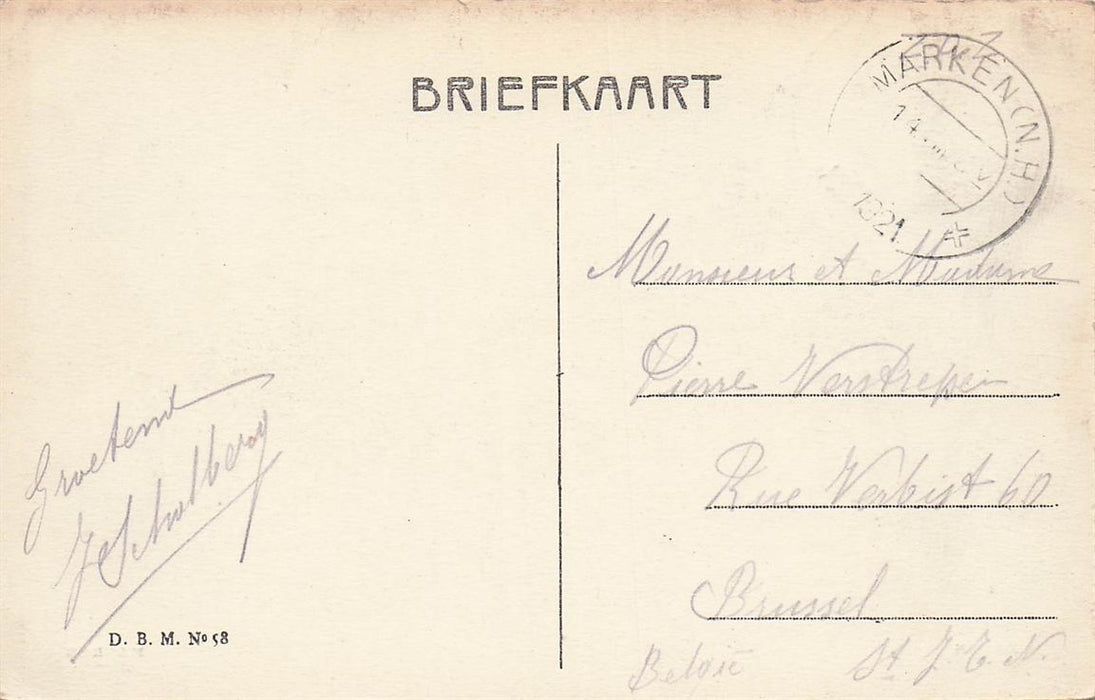 BRIEFKAART
MARKEN (N.H.)
1921
Monsieur et Madame
Pierre Verstrepen
Rue Verbist 60
Brussel
België St. J. t. N.
Groetend
JScholberg
D. B. M. No 58